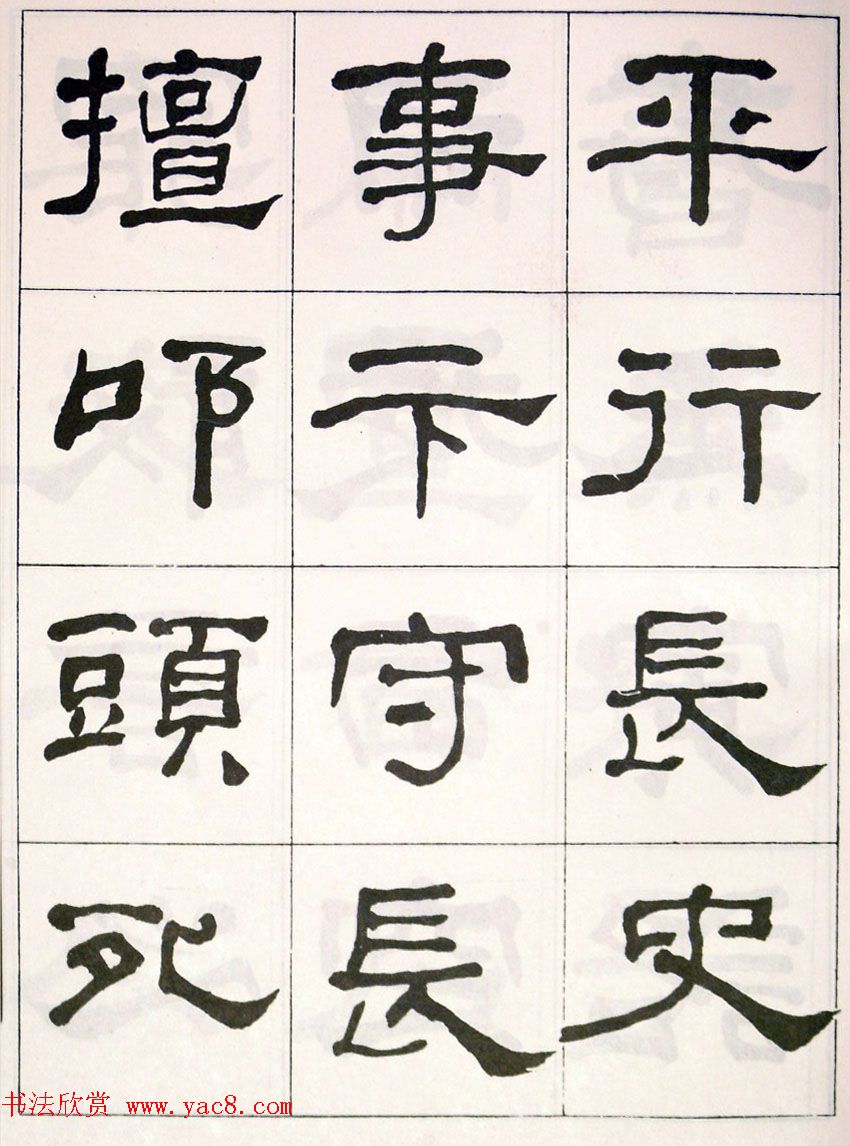 平行長史
事卞守長
擅叩頭死
书法欣赏 www.yac8.com